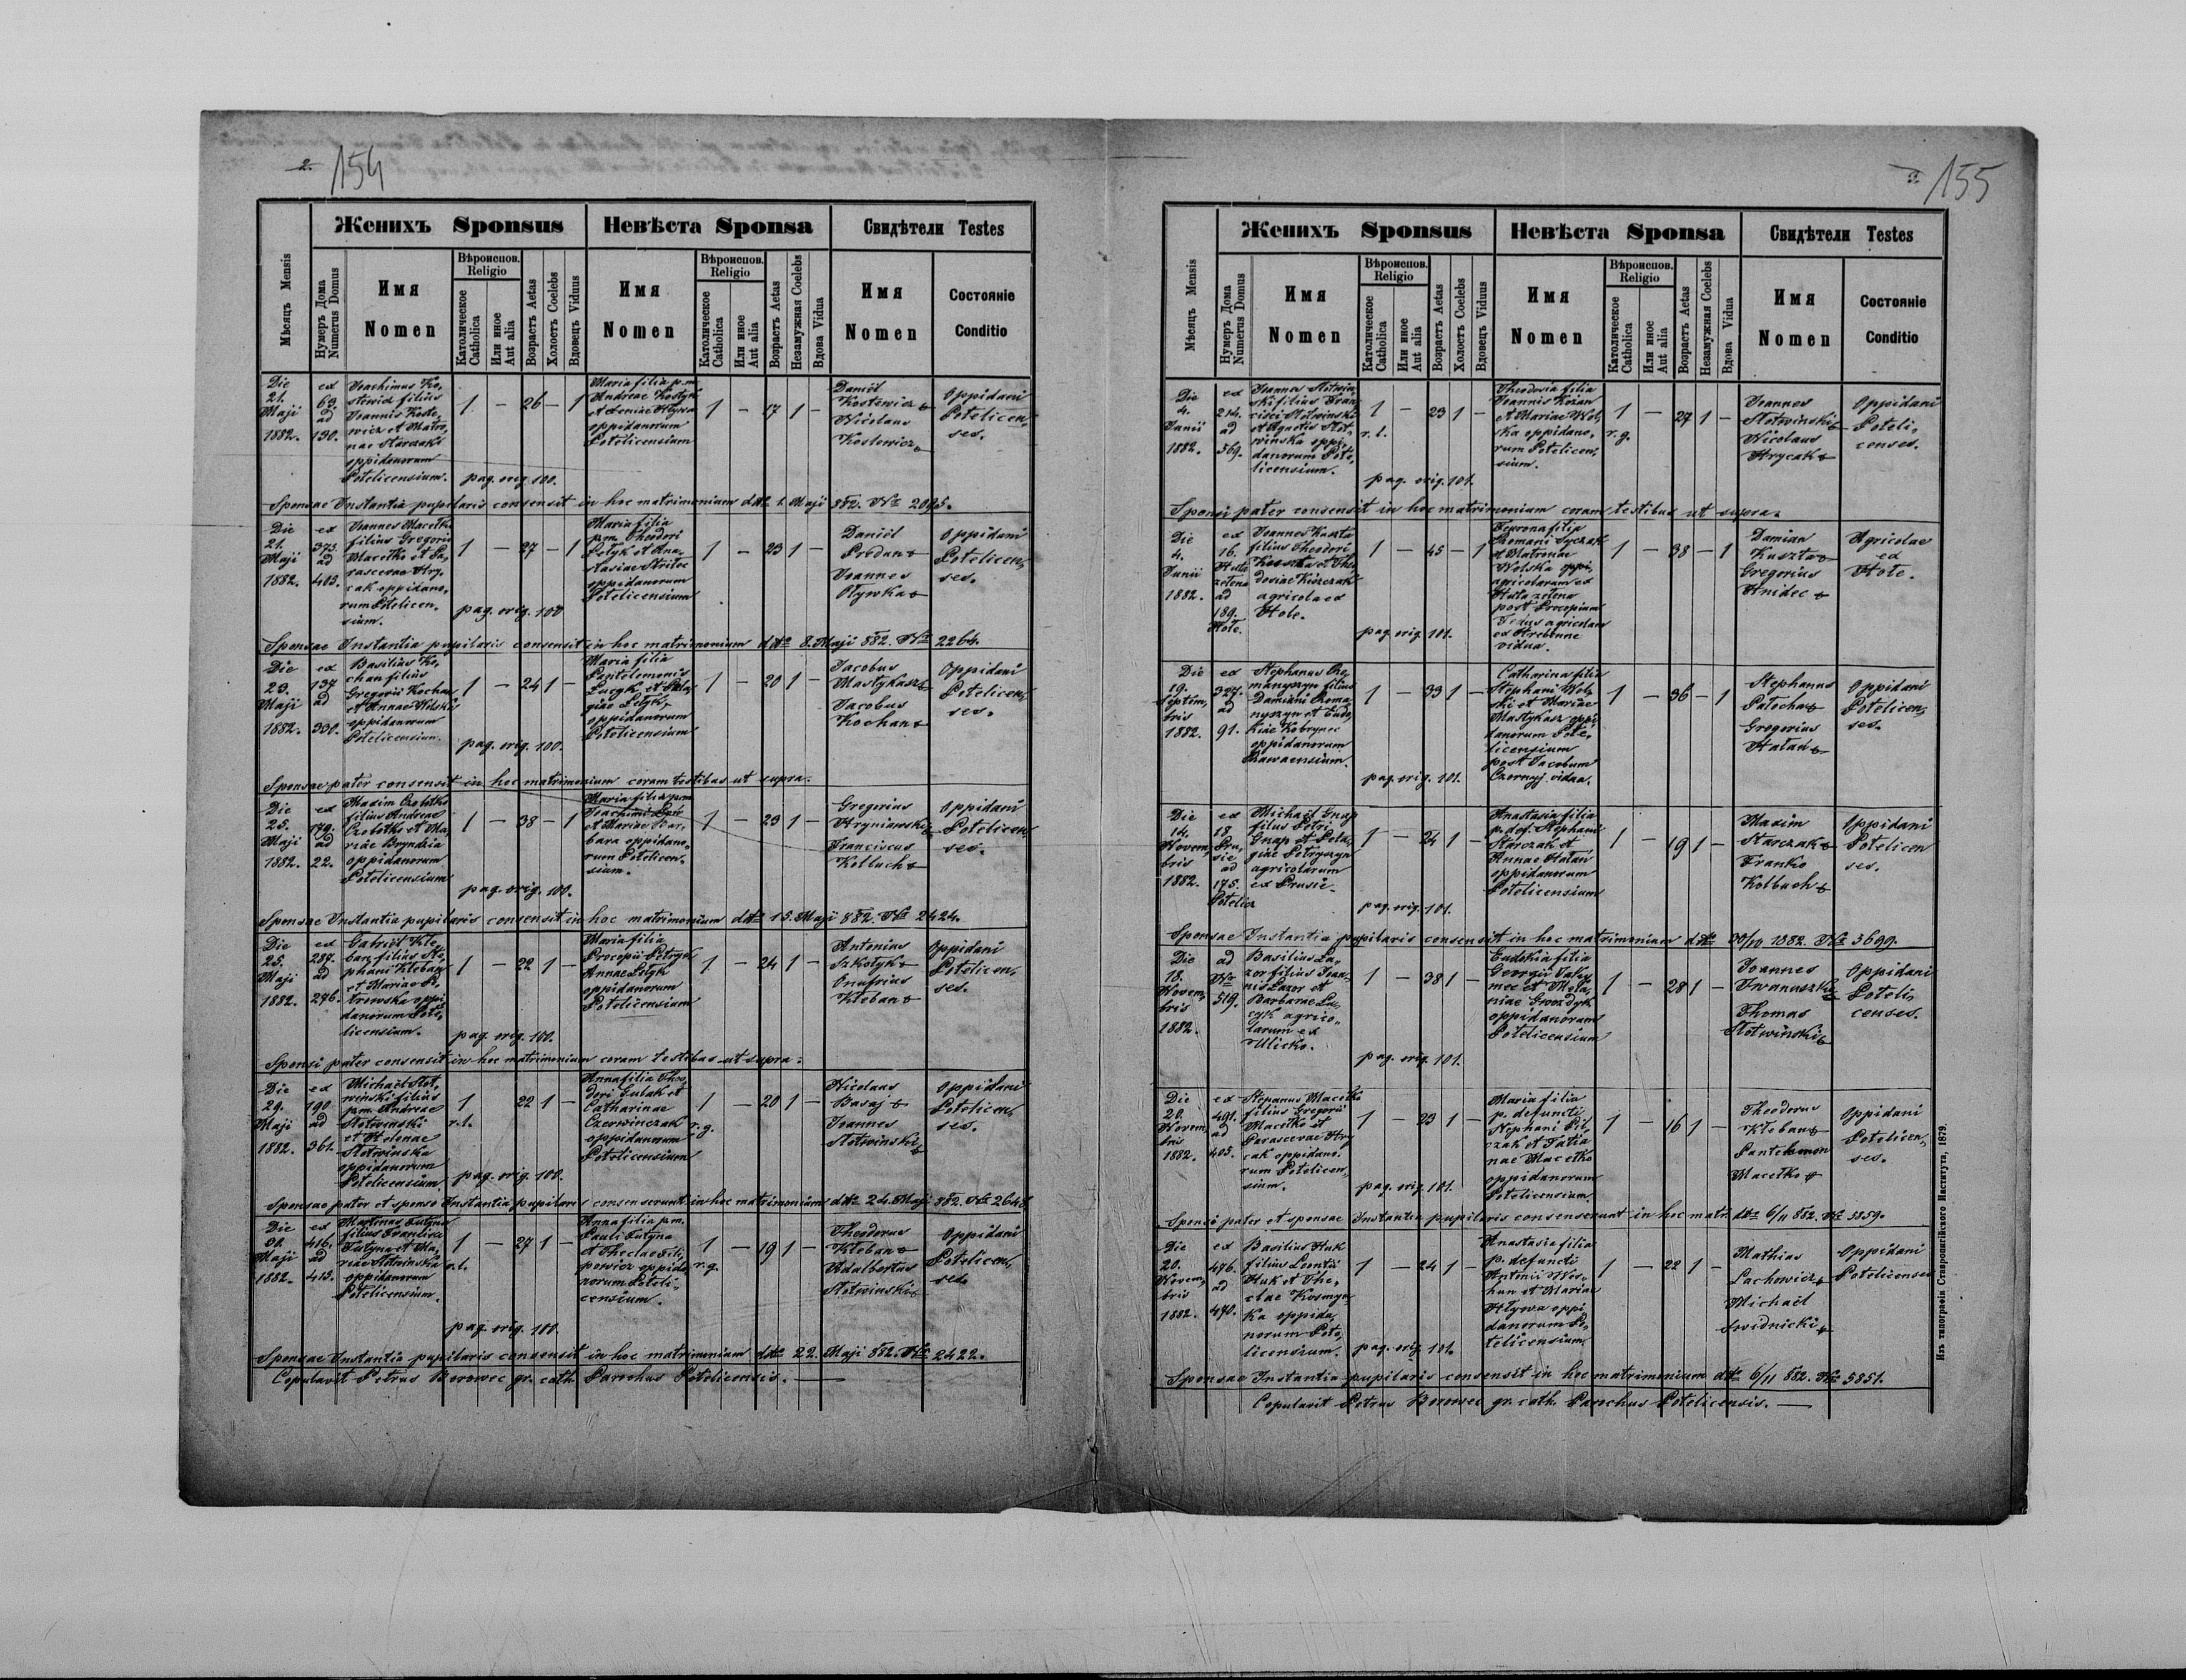 2.
154
Женихъ Sponsus
Невѣста Sponsa
Свидѣтели Testes
Мѣсяцъ Mensis
Нумеръ Дома
Numerus Domus
Имя
Nomen
Вѣроиспов.
Religio
Католическое
Catholica
Или иное
Aut alia
Возрастъ Aetas
Холостъ Coelebs
Вдовецъ Viduus
Имя
Nomen
Вѣроиспов.
Religio
Католическое
Catholica
Или иное
Aut alia
Возрастъ Aetas
Незамужная Coelebs
Вдова Vidua
Имя
Nomen
Состояніе
Conditio
Die
21.
Maji
1882.
ex
63.
ad
130.
Joachimus Ko,
stewicz filius
Joannis Koste,
wicz et Matro,
nae Starczaki
oppidanorum
Potelicensium.
1 — 26 — 1
Maria filia p.m.
Andreae Kostyk
et Xeniae Hływa
oppidanorum
Potelicensium
1 — 17 1 —
Daniel
Kostewicz +
Nicolaus
Kostewicz +
Oppidani
Potelicen,
ses.
pag. orig. 100.
Sponsae Instantia pupilaris consensit in hoc matrimonium ddto 1. Maji 882. No 2095.
Die
21.
Maji
1882.
ex
373.
ad
403.
Joannes Macełko
filius Gregorii
Macełko et Pa,
rascevae Hry,
cak oppidano,
rum Potelicen,
sium.
1 — 27 — 1
Maria filia
p.m. Theodori
Potyk et Ana,
stasiae
oppidanorum
Potelicensium
1 — 23 1 —
Daniel
Prodan +
Joannes
Hływka +
Oppidani
Potelicen,
ses.
pag. orig. 100
Sponsae Instantia pupilaris consensit in hoc matrimonium ddto 8. Maji 882. No 2264.
Die
23.
Maji
1882.
ex
137
ad
330.
Basilius Ko,
chan filius
Gregorii Kochan
et Annae Wolski
oppidanorum
Potelicensium.
1 — 24 1 —
Maria filia
Pantelemonis
Lucyk et Pela,
giae Petyk,
oppidanorum
Potelicensium
1 — 20 1 —
Jacobus
Mastykasz +
Jacobus
Kochan +
Oppidani
Potelicen,
ses.
pag. orig. 100.
Sponsae pater consensit in hoc matrimonium coram testibus ut supra.
Die
25.
Maji
1882.
ex
179.
ad
22.
Maxim Czobotko
filius Andreae
Czobotko et Ma,
riae Bryndzia
oppidanorum
Potelicensium
1 — 38 — 1
Maria filia p.m.
Joachimi
et Mariae Bar,
bara oppidano,
rum Potelicen,
sium.
1 — 23 1 —
Gregorius
Hryniawski +
Franciscus
Kolbuch +
Oppidani
Potelicen,
ses.
pag. orig. 100.
Sponsae Instantia pupilaris consensit in hoc matrimonium ddto 15. Maji 882. No 2424.
Die
25.
Maji
1882.
ex
287.
ad
276.
Gabriel Kłe,
ban filius Ste,
phani Kłeban
et Mariae Pi,
trowska oppi,
danorum Pote,
licensium.
1 — 22 1 —
Maria filia
Procopii Petryk
Annae Potyk
oppidanorum
Potelicensium
1 — 24 1 —
Antonius
Szkołyk +
Onufrius
Kłeban +
Oppidani
Potelicen,
ses.
pag. orig. 100.
Sponsi pater consensit in hoc matrimonium coram testibus ut supra.
Die
29.
Maji
1882.
ex
190
ad
361.
Michael Słot,
winski filius
p.m. Andreae
Słotwinski
et Helenae
Słotwinska
oppidanorum
Potelicensium
1 22 1 —
r.l.
Anna filia Theo,
dori Gubak et
Catharinae
Czerwinczak
oppidanorum
Potelicensium
1 — 20 1 —
r.g.
Nicolaus
Basaj +
Joannes
Słotwinski +
Oppidani
Potelicen,
ses.
pag. orig. 100.
Sponsae pater et sponso Instantia pupilaris consenserunt in hoc matrimonium ddto 24. Maji 882. No 2648.
Die
30.
Maji
1882.
ex
416.
ad
413.
Martinus Putyna
filius Francisci
Putyna et Ma,
riae Słotwinska
oppidanorum
Potelicensium.
1 — 27 1 —
r.l.
Anna filia p.m.
Pauli Putyna
et Theclae Fili,
powicz oppida,
norum Poteli,
censium.
1 — 19 1 —
r.g.
Theodorus
Kłeban +
Adalbertus
Słotwinski +
Oppidani
Potelicen,
ses.
pag. orig. 100.
Sponsae Instantia pupilaris consensit in hoc matrimonium ddto 22. Maji 882. No 2422.
Copulavit Petrus Borowec gr. cath. Parochus Potelicensis. —
3.
155
Женихъ Sponsus
Невѣста Sponsa
Свидѣтели Testes
Мѣсяцъ Mensis
Нумеръ Дома
Numerus Domus
Имя
Nomen
Вѣроиспов.
Religio
Католическое
Catholica
Или иное
Aut alia
Возрастъ Aetas
Холостъ Coelebs
Вдовецъ Viduus
Имя
Nomen
Вѣроиспов.
Religio
Католическое
Catholica
Или иное
Aut alia
Возрастъ Aetas
Незамужная Coelebs
Вдова Vidua
Имя
Nomen
Состояніе
Conditio
Die
4.
Junii
1882.
ex
214.
ad
569.
Joannes Słotwin,
ski filius Fran,
cisci Słotwinski
et Agnetis Słot,
winska oppi,
danorum Pote,
licensium.
1 — 23 1 —
r.l.
Theodosia filia
Joannis Kozan
et Mariae Wol,
ska oppidano,
rum Potelicen,
sium.
1 — 27 1 —
r.g.
Joannes
Słotwinski +
Nicolaus
Hrycak +
Oppidani
Poteli,
censes.
pag. orig. 101.
Sponsi pater consensit in hoc matrimonium coram testibus ut supra.
Die
4.
Junii
1882.
ex
16.
Huta
zelena
ad
189.
Hole.
Joannes Kuszta
filius Theodori
Kuszta et Theo,
dosiae Kiszczak
agricola ex
Hole.
1 — 45 — 1
Fevrona filia
Romani Syczak
et Matronae
Wolska oppi,
agricolarum ex
Huta zelena
post Procopium
Fedus agricolam
ex Hrebenne
vidua.
1 — 38 — 1
Damian
Kuszta +
Gregorius
Hnidec +
Agricolae
ex
Hole.
pag. orig. 101.
Die
19.
Septem,
bris
1882.
ex
327.
ad
91.
Stephanus Ro,
manyszyn filius
Damiani Roma,
nyszyn et Eudo,
kiae Kobryner
oppidanorum
Rawaensium.
1 — 33 1 —
Catharina filia
Stephani Wol,
ski et Mariae
Mastykasz oppi,
danorum Pote,
licensium
post Jacobum
Czornyj vidua.
1 — 36 — 1
Stephanus
Patocha +
Gregorius
Hałan +
Oppidani
Potelicen,
ses.
pag. orig. 101.
Die
14.
Novem,
bris
1882.
ex
18
Pru,
sie
ad
175.
Potelicz
Michael Gnap
filius Petri
Gnap et Pela,
giae Petryszyn
agricolarum
ex Prusie.
1 — 24 1 —
Anastasia filia
p. def. Stephani
Starczak et
Annae Hałan
oppidanorum
Potelicensium
1 — 19 1 —
Maxim
Starczak +
Franko
Kolbuch +
Oppidani
Potelicen
ses.
pag. orig. 101.
Sponsae Instantia pupilaris consensit in hoc matrimonium ddto 30/10 1882. No 5699.
Die
18.
Novem,
bris
1882.
ad
No
519.
Basilius La,
zor filius Joan,
nis Lazor et
Barbarae Lu,
cyk agrico,
larum ex
Ulicko.
1 — 38 1 —
Eudokia filia
Georgii Jaky,
mec et Mela,
niae Gwozdyk
oppidanorum
Potelicensium
1 — 28 1 —
Joannes
Iwanuszko +
Thomas
Słotwinski +
Oppidani
Poteli,
censes.
pag. orig. 101.
Die
20.
Novem,
bris
1882.
ex
491.
ad
403.
Stepanus Macełko
filius Gregorii
Macełko et
Parascevae Hry
cak oppidano,
rum Potelicen,
sium.
1 — 23 1 —
Maria filia
p. defuncti
Stephani Pil,
czak et Tatia
nae Macełko
oppidanorum
Potelicensium.
1 — 16 1 —
Theodorus
Kłeban +
Pantelemon
Macełko +
Oppidani
Potelicen,
ses.
pag. orig. 101.
Sponsi pater et sponsae Instantia pupilaris consenserunt in hoc matr. ddto 6/11 882. No 5859.
Die
20.
Novem,
bris
1882.
ex
476.
ad
470.
Basilius Huk
filius Leontii
Huk et The,
clae Kosmyn,
ka oppida,
norum Pote,
licensium.
1 — 24 1 —
Anastasia filia
p. defuncti
Antonii Wos,
han et Mariae
Hływa oppi
danorum Po,
telicensium
1 — 22 1 —
Mathias
Lachowicz +
Michael
Swidnicki +
Oppidani
Potelicenses
pag. orig. 101.
Sponsae Instantia pupilaris consensit in hoc matrimonium ddto 6/11 882. No 5851.
Copulavit Petrus Borowec gr. cath. Parochus Potelicensis. —
Изъ типографіи Ставропигійского Института, 1879.